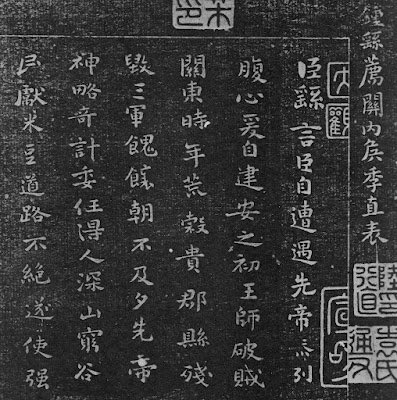 鍾繇薦關內侯季直表
臣繇言臣自遭遇先帝忝列
腹心爰自建安之初王師破賊
關東時年荒穀貴郡縣殘
毀三軍餽饟朝不及夕先帝
神略奇計委任得人深山窮谷
民獻米豆道路不絕遂使强
大觀